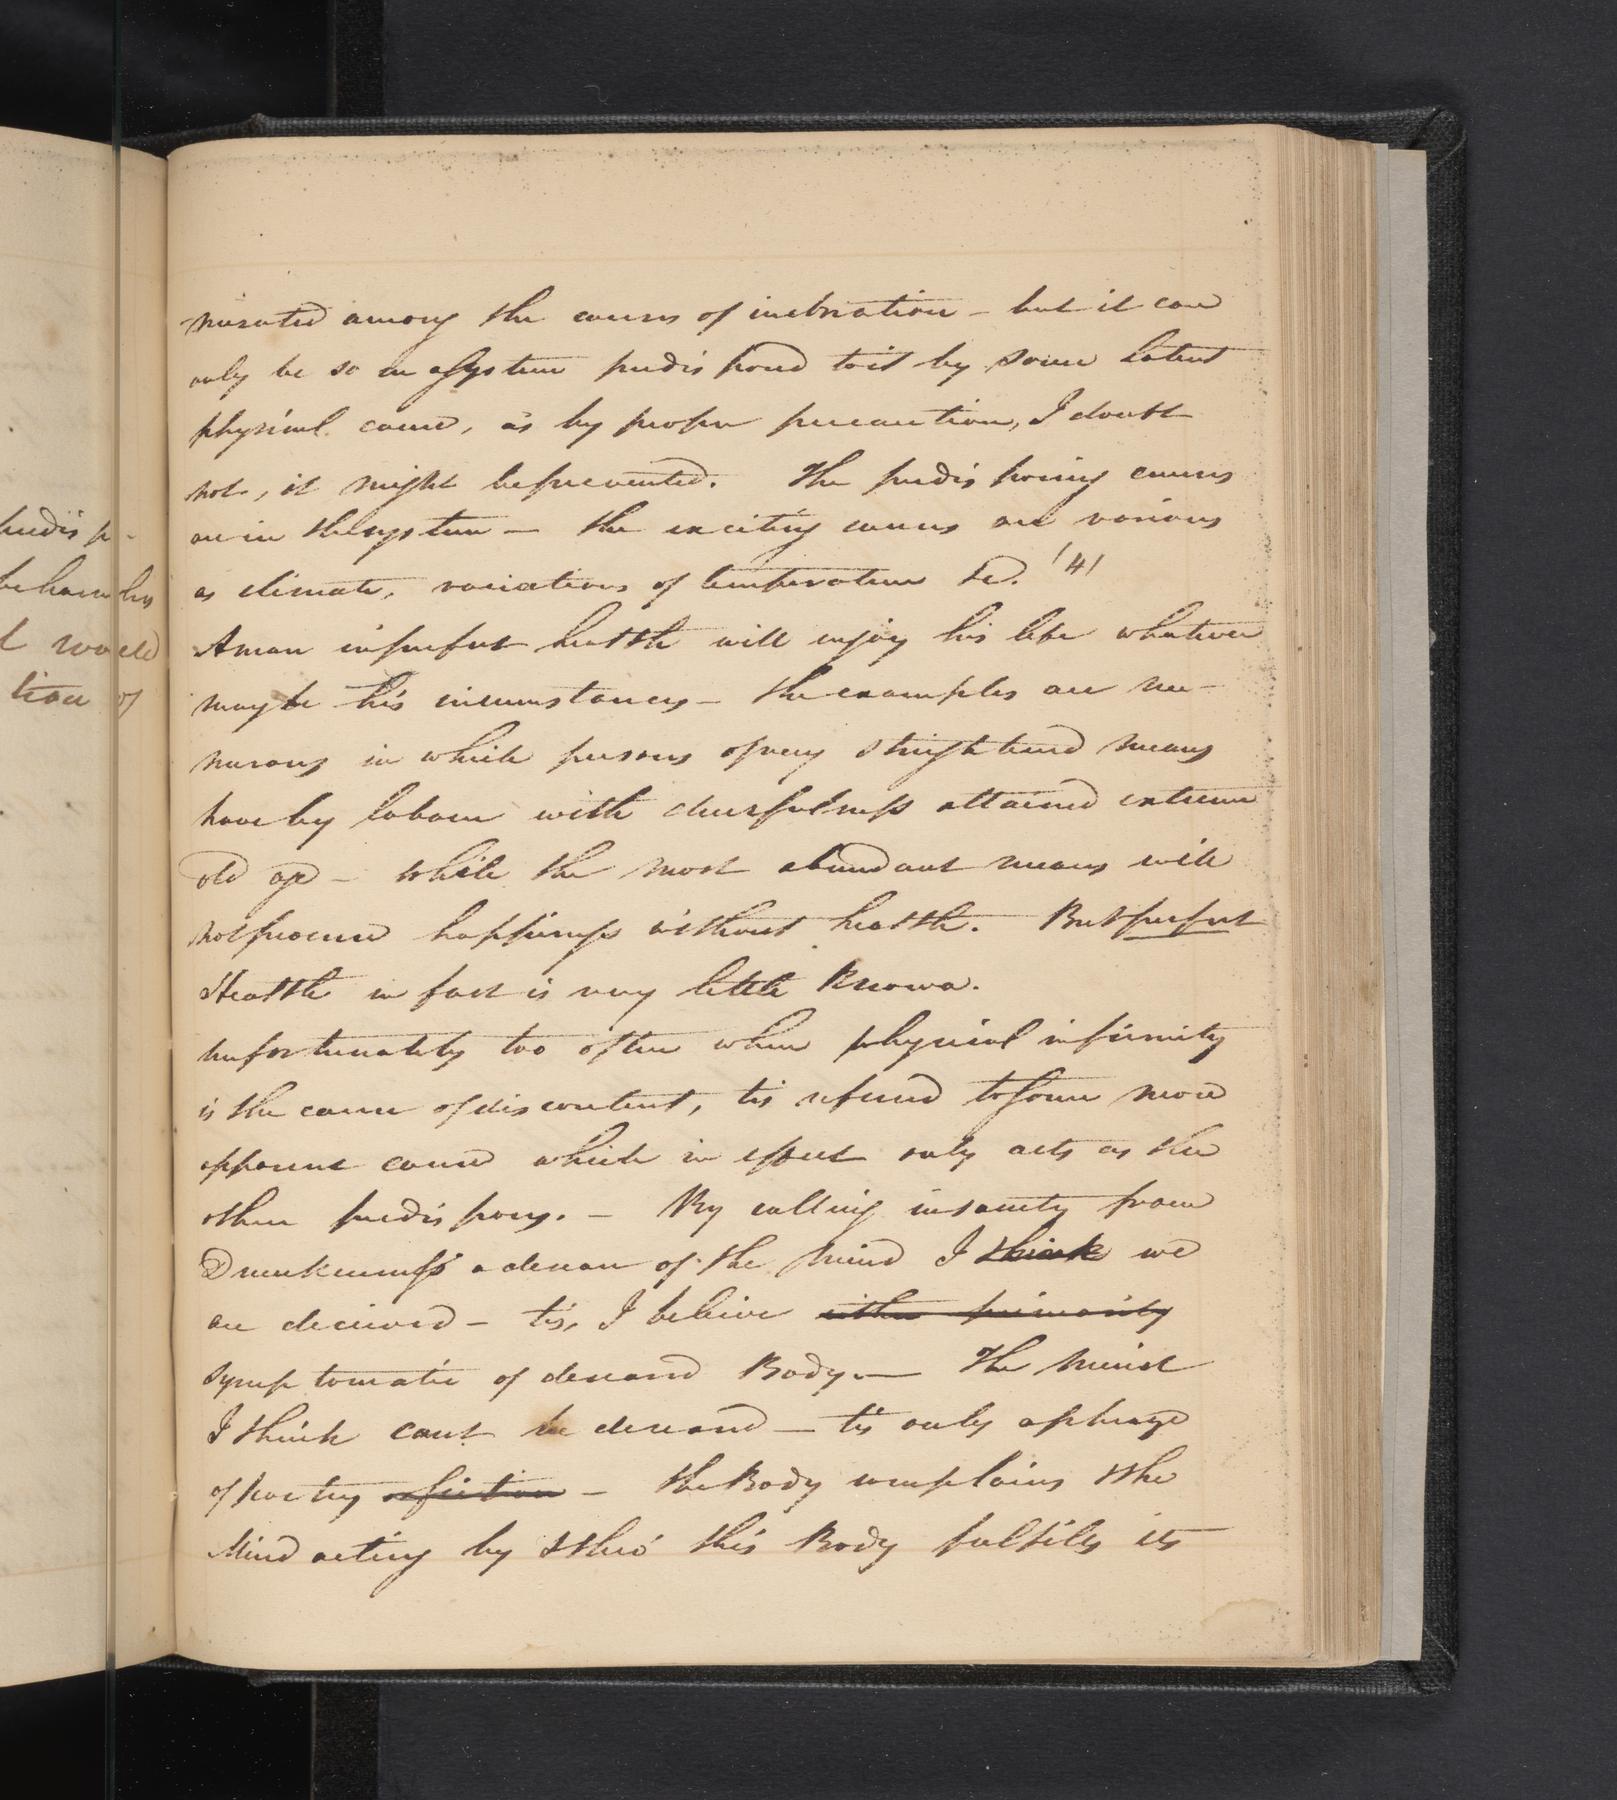 predisp-
behaves his
l would
tion of
merated among the causes of inebriation - but it can
only be so in a System predisposed to it by some latent
physical cause, as by proper precaution, I doubt
not, it might be prevented. The predisposing causes
are in the system - the exciting causes are various
as climate, variations of temperature &c. /4/
A man in perfect health will enjoy his life whatever
may be his circumstances - the examples are nu-
merous in which persons of very straightened means
have by labour with cheerfulness attained extreme
old age - while the most abundant means will
not procure happiness without health. But perfect
Health in fact is very little known.
unfortunately too often when physical infirmity
is the cause of discontent, tis refered to some more
apparent cause which in effect only acts as the
other predisposes. - By calling insanity from
Drunkenness a disease of the mind I think we
are deceived - tis, I believe either primarily
symptomatic of diseased Body. - The mind
I think cant be diseased - tis only a phraze
of poetry or fiction - the Body complains & the
Mind acting by & thro' this Body fulfills its